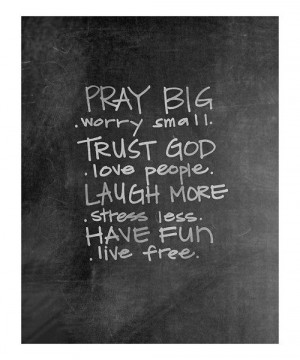 PRAY BIG
.worry small.
TRUST GOD
.love people.
LAUGH MORE
.stress less.
HAVE FUN
.live free.